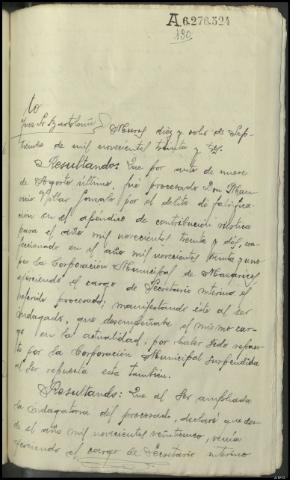 A.6.276.324
190
to
Juez Sr Bartolomé } Muros diez y ocho de Sep-
tiembre de mil novecientos treinta y
Resultando: Que por auto de nueve
de Agosto último, fué procesado Don
por el delito de falsifica-
cion en el apendice de contribucion rústica
para el año mil novecientos treinta y dos, con-
feccionado en el año mil novecientos treinta y uno
por la Corporación Municipal de
ejerciendo el cargo de Secretario interino el
referido procesado; manifestando éste al ser
indagado, que desempeñaba el mismo car-
go en la actualidad, por haber sido repues-
to por la Corporación Municipal suspendida
al ser repuesta esta tambien.
Resultando: Que al ser ampliada
la indagatoria del procesado, declaró que des-
de el año mil novecientos veinticinco, venia
ejerciendo el cargo de Secretario interino